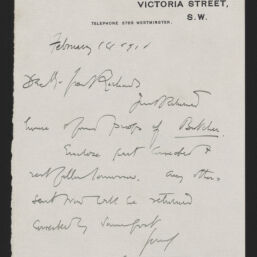 VICTORIA STREET,
S.W.
TELEPHONE 5799 WESTMINSTER.
February
Dear Mr Grant Richards
Just returned
home & find proofs of Butcher.
Enclose part corrected &
rest follow tomorrow. Any others
sent now will be returned
corrected by